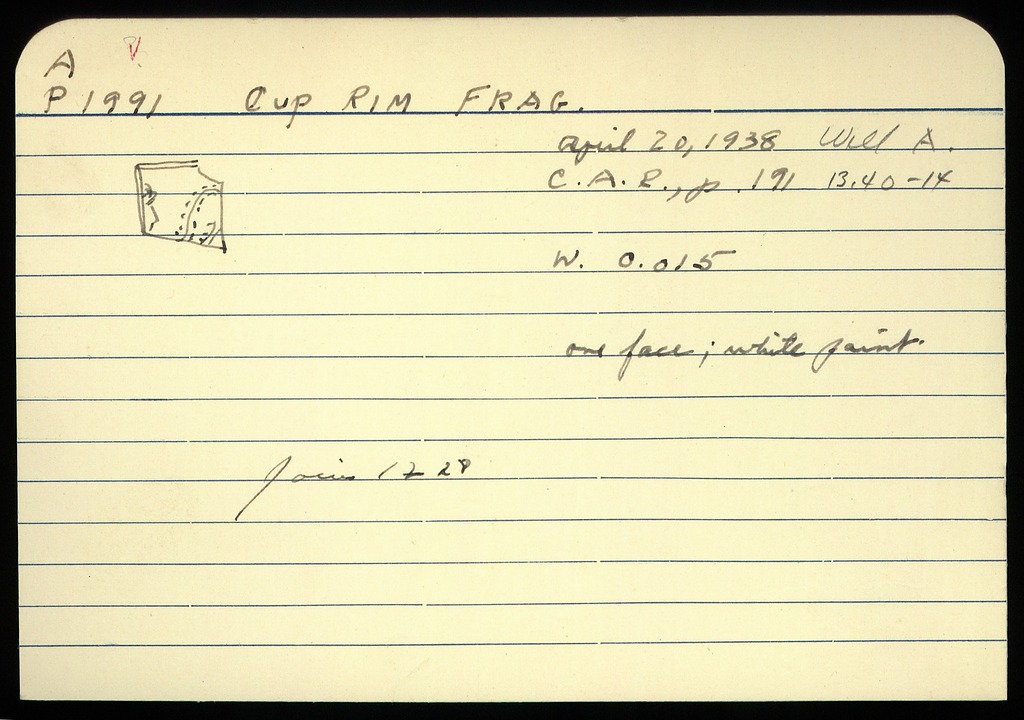 A
P 1991 Cup RIM FRAG.
April 20, 1938 Well A.
C.A.R., p. 191 13.40-14
W. 0.015
one face; white paint.
Joins 1728